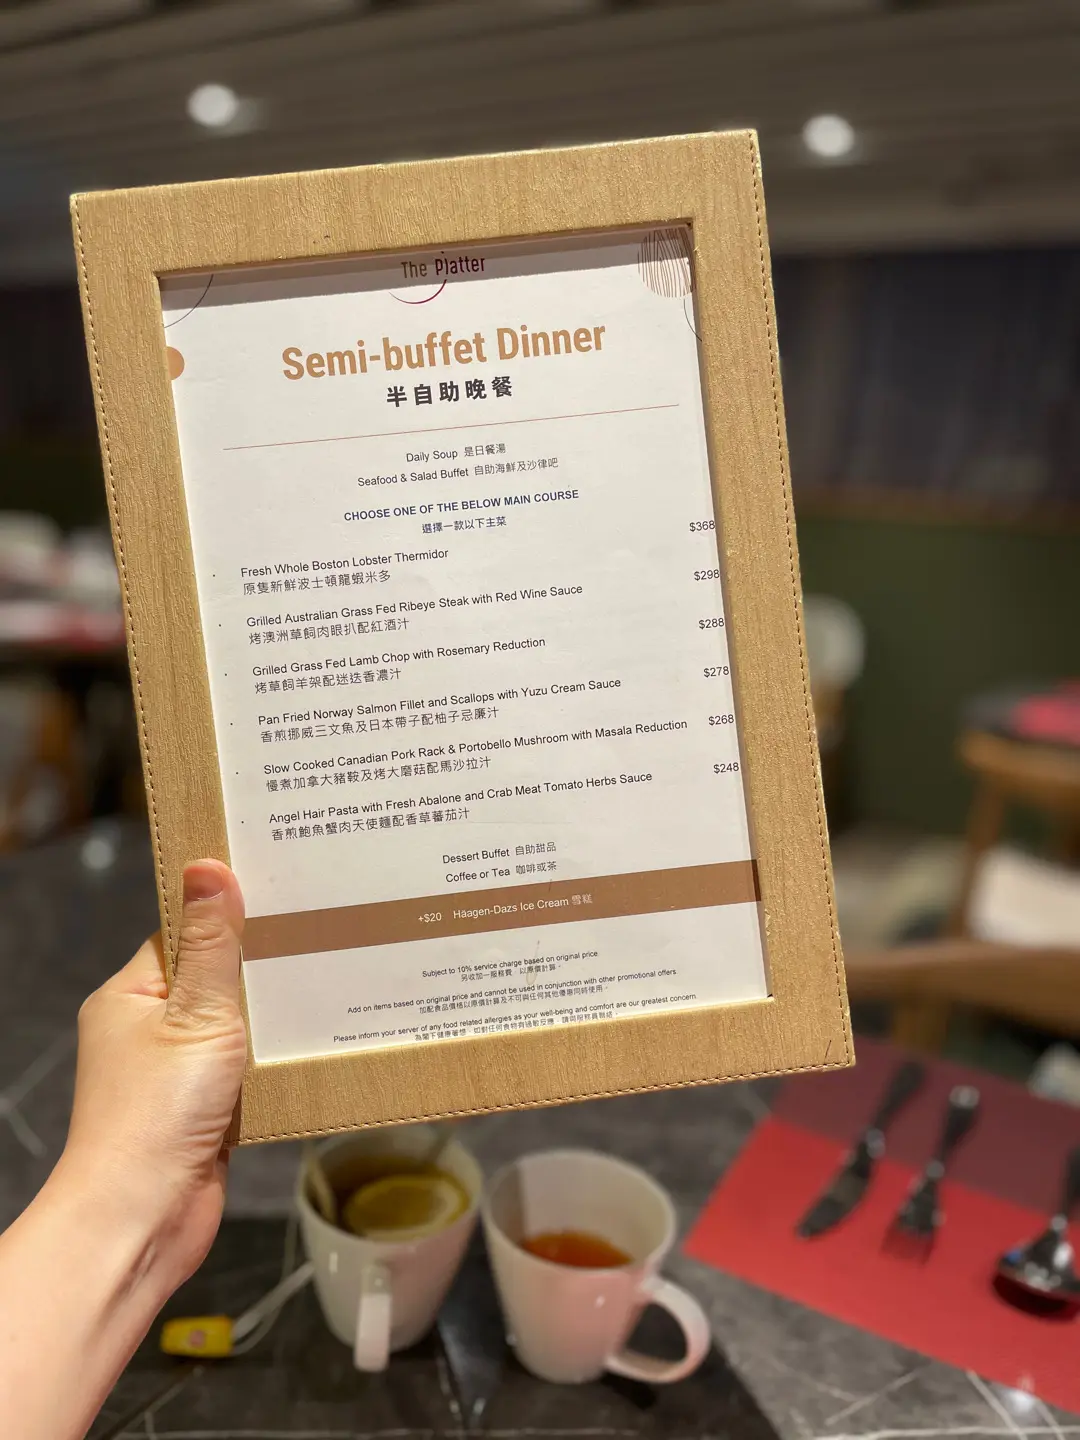 The Platter
Semi-buffet Dinner
半自助晚餐
Daily Soup 是日餐湯
Seafood & Salad Buffet 自助海鮮及沙律吧
CHOOSE ONE OF THE BELOW MAIN COURSE
選擇一款以下主菜
Fresh Whole Boston Lobster Thermidor $368
原隻新鮮波士頓龍蝦米多
Grilled Australian Grass Fed Ribeye Steak with Red Wine Sauce $298
烤澳洲草飼肉眼扒配紅酒汁
Grilled Grass Fed Lamb Chop with Rosemary Reduction $288
烤草飼羊架配迷迭香濃汁
Pan Fried Norway Salmon Fillet and Scallops with Yuzu Cream Sauce $278
香煎挪威三文魚及日本帶子配柚子忌廉汁
Slow Cooked Canadian Pork Rack & Portobello Mushroom with Masala Reduction $268
慢煮加拿大豬鞍及烤大磨菇配馬沙拉汁
Angel Hair Pasta with Fresh Abalone and Crab Meat Tomato Herbs Sauce $248
香煎鮑魚蟹肉天使麵配香草蕃茄汁
Dessert Buffet 自助甜品
Coffee or Tea 咖啡或茶
+$20 Häagen-Dazs Ice Cream 雪糕
Subject to 10% service charge based on original price
另收加一服務費，以原價計算。
Add on items based on original price and cannot be used in conjunction with other promotional offers
加配食品價格以原價計算及不可與任何其他優惠同時使用。
Please inform your server of any food related allergies as your well-being and comfort are our greatest concern
為閣下健康著想，如對任何食物有過敏反應，請與服務員聯絡。